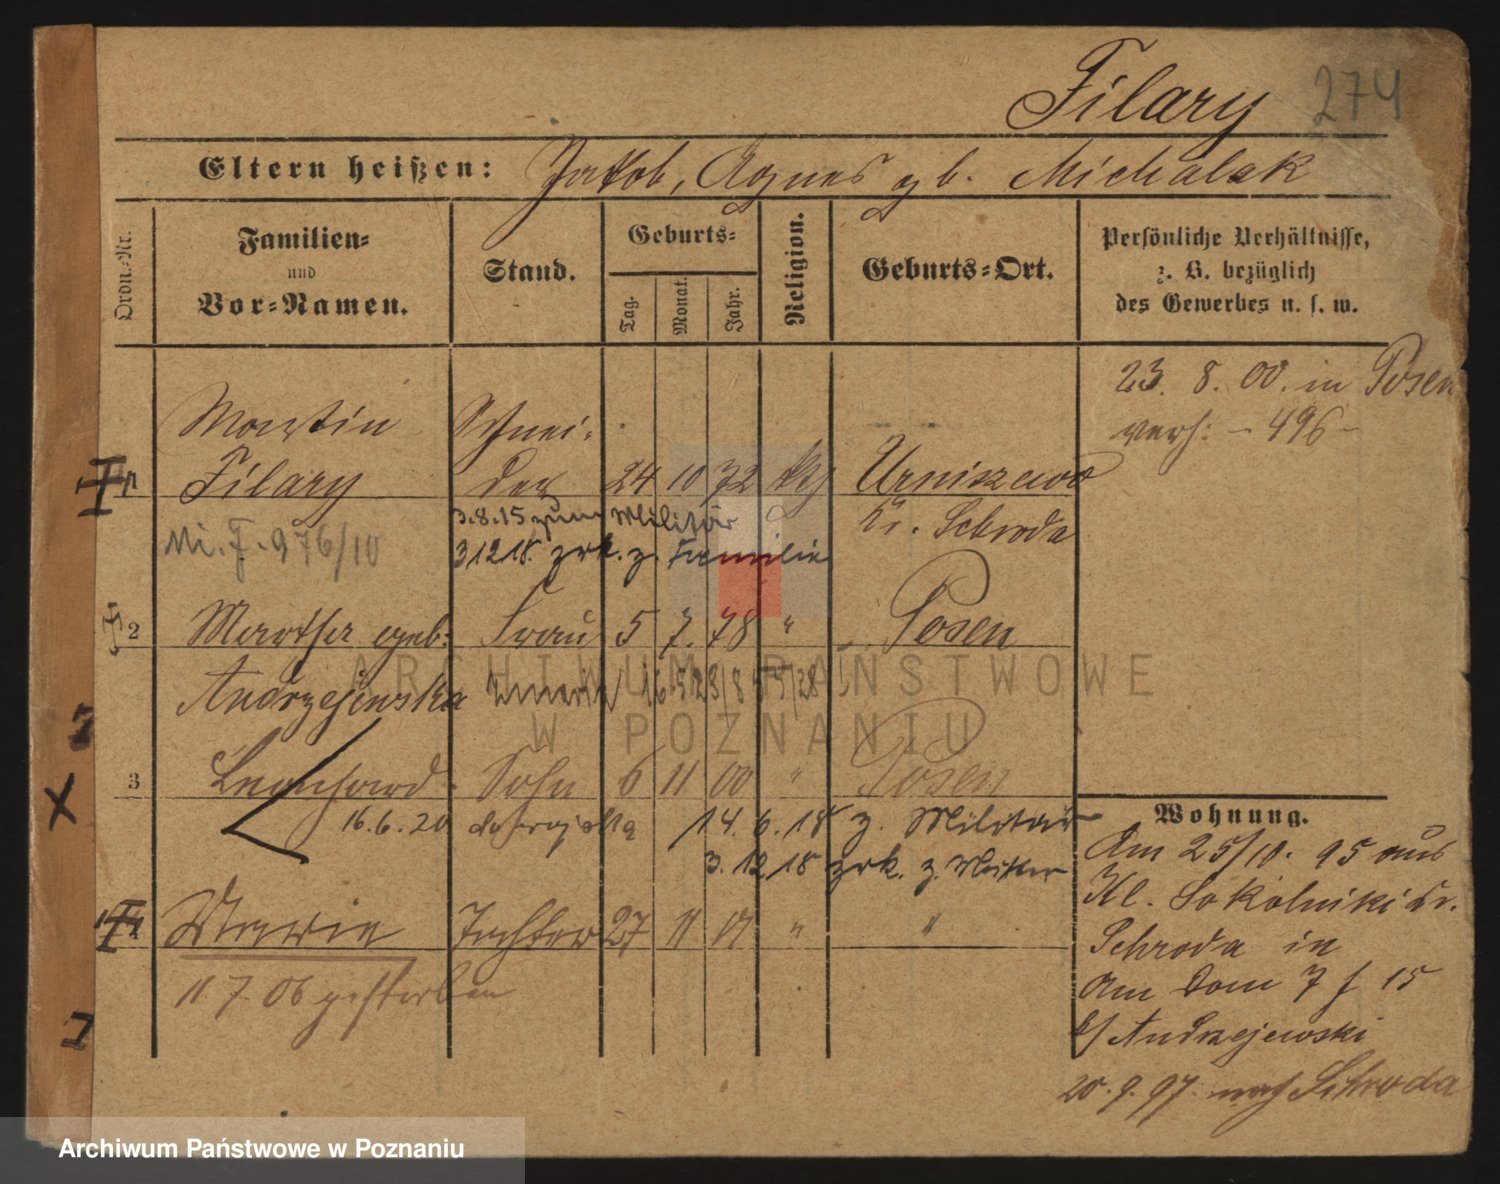 Filary 274
Eltern heißen: Jakob, Agnes gb. Michalak
Ordn.-Nr.
Familien-
und
Vor-Namen.
Stand.
Geburts-
Tag.
Monat.
Jahr.
Religion.
Geburts-Ort.
Persönliche Verhältnisse,
z. B. bezüglich
des Gewerbes u. s. w.
23. 8. 00. in Posen
verh: - 496 -
Martin Schnei-
1 Filary der 24 10 72 kth Urniszewo
Kr. Schroda
Mi. F. 976/10
3.8.15 zum Militär
3 12 18. zrk. z. Familie
2 Martha geb: Frau 5 7. 78 " Posen
Andrzejewska 16 5 23/8 75/28
ARCHIWUM PAŃSTWOWE
W POZNANIU
3 Leonhard Sohn 6 11 00 " Posen
16.6.20 14. 6. 18 z. Militär
3. 12 18 zrk. z. Mutter
4 Marie Tochter 27 11 01 " "
11. 7. 06 gestorben
Wohnung.
Am 25/10. 95 aus
Kl. Sokolniki Kr.
Schroda in
Am Dom 7 f 15
b/ Andrzejewski
20. 9. 97. nach Schroda
Archiwum Państwowe w Poznaniu